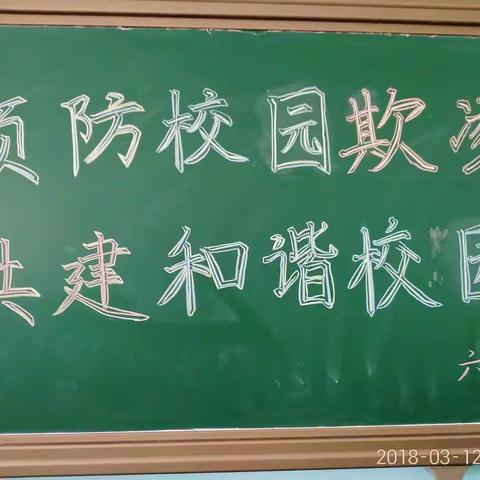 预防校园欺凌
共建和谐校园
六
2018-03-12